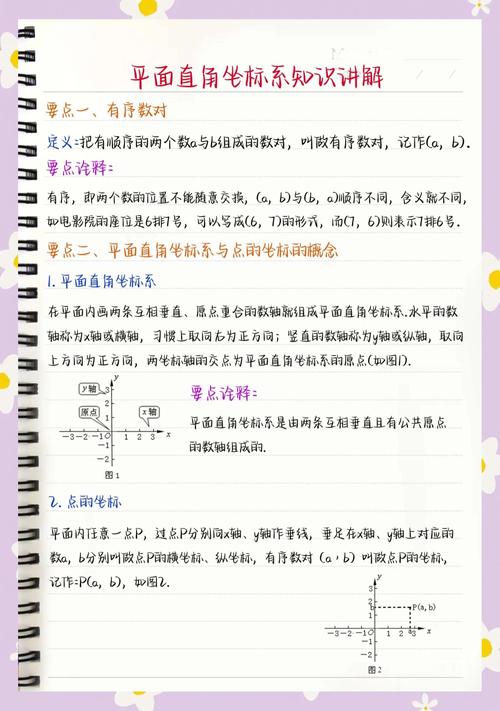 平面直角坐标系知识讲解
要点一、有序数对
定义:把有顺序的两个数a与b组成的数对，叫做有序数对，记作(a，b).
要点诠释:
有序，即两个数的位置不能随意交换，(a，b)与(b，a)顺序不同，含义就不同，
如电影院的座位是6排7号，可以写成(6，7)的形式，而(7，6)则表示7排6号.
要点二、平面直角坐标系与点的坐标的概念
1.平面直角坐标系
在平面内画两条互相垂直、原点重合的数轴就组成平面直角坐标系.水平的数
轴称为x轴或横轴，习惯上取向右为正方向；竖直的数轴称为y轴或纵轴，取向
上方向为正方向，两坐标轴的交点为平面直角坐标系的原点(如图1).
y
y轴
3
2
原点
1
x轴
-3 -2 -1 O 1 2 3 x
-1
-2
图1
要点诠释:
平面直角坐标系是由两条互相垂直且有公共原点
的数轴组成的.
2.点的坐标
平面内任意一点P，过点P分别向x轴、y轴作垂线，垂足在x轴、y轴上对应的
数a，b分别叫做点P的横坐标、纵坐标，有序数对（a，b）叫做点P的坐标，
记作:P(a，b)，如图2.
y
3
2
b
P(a,b)
1
-3 -2 -1 O 1 2 a 3 x
-1
-2
图2